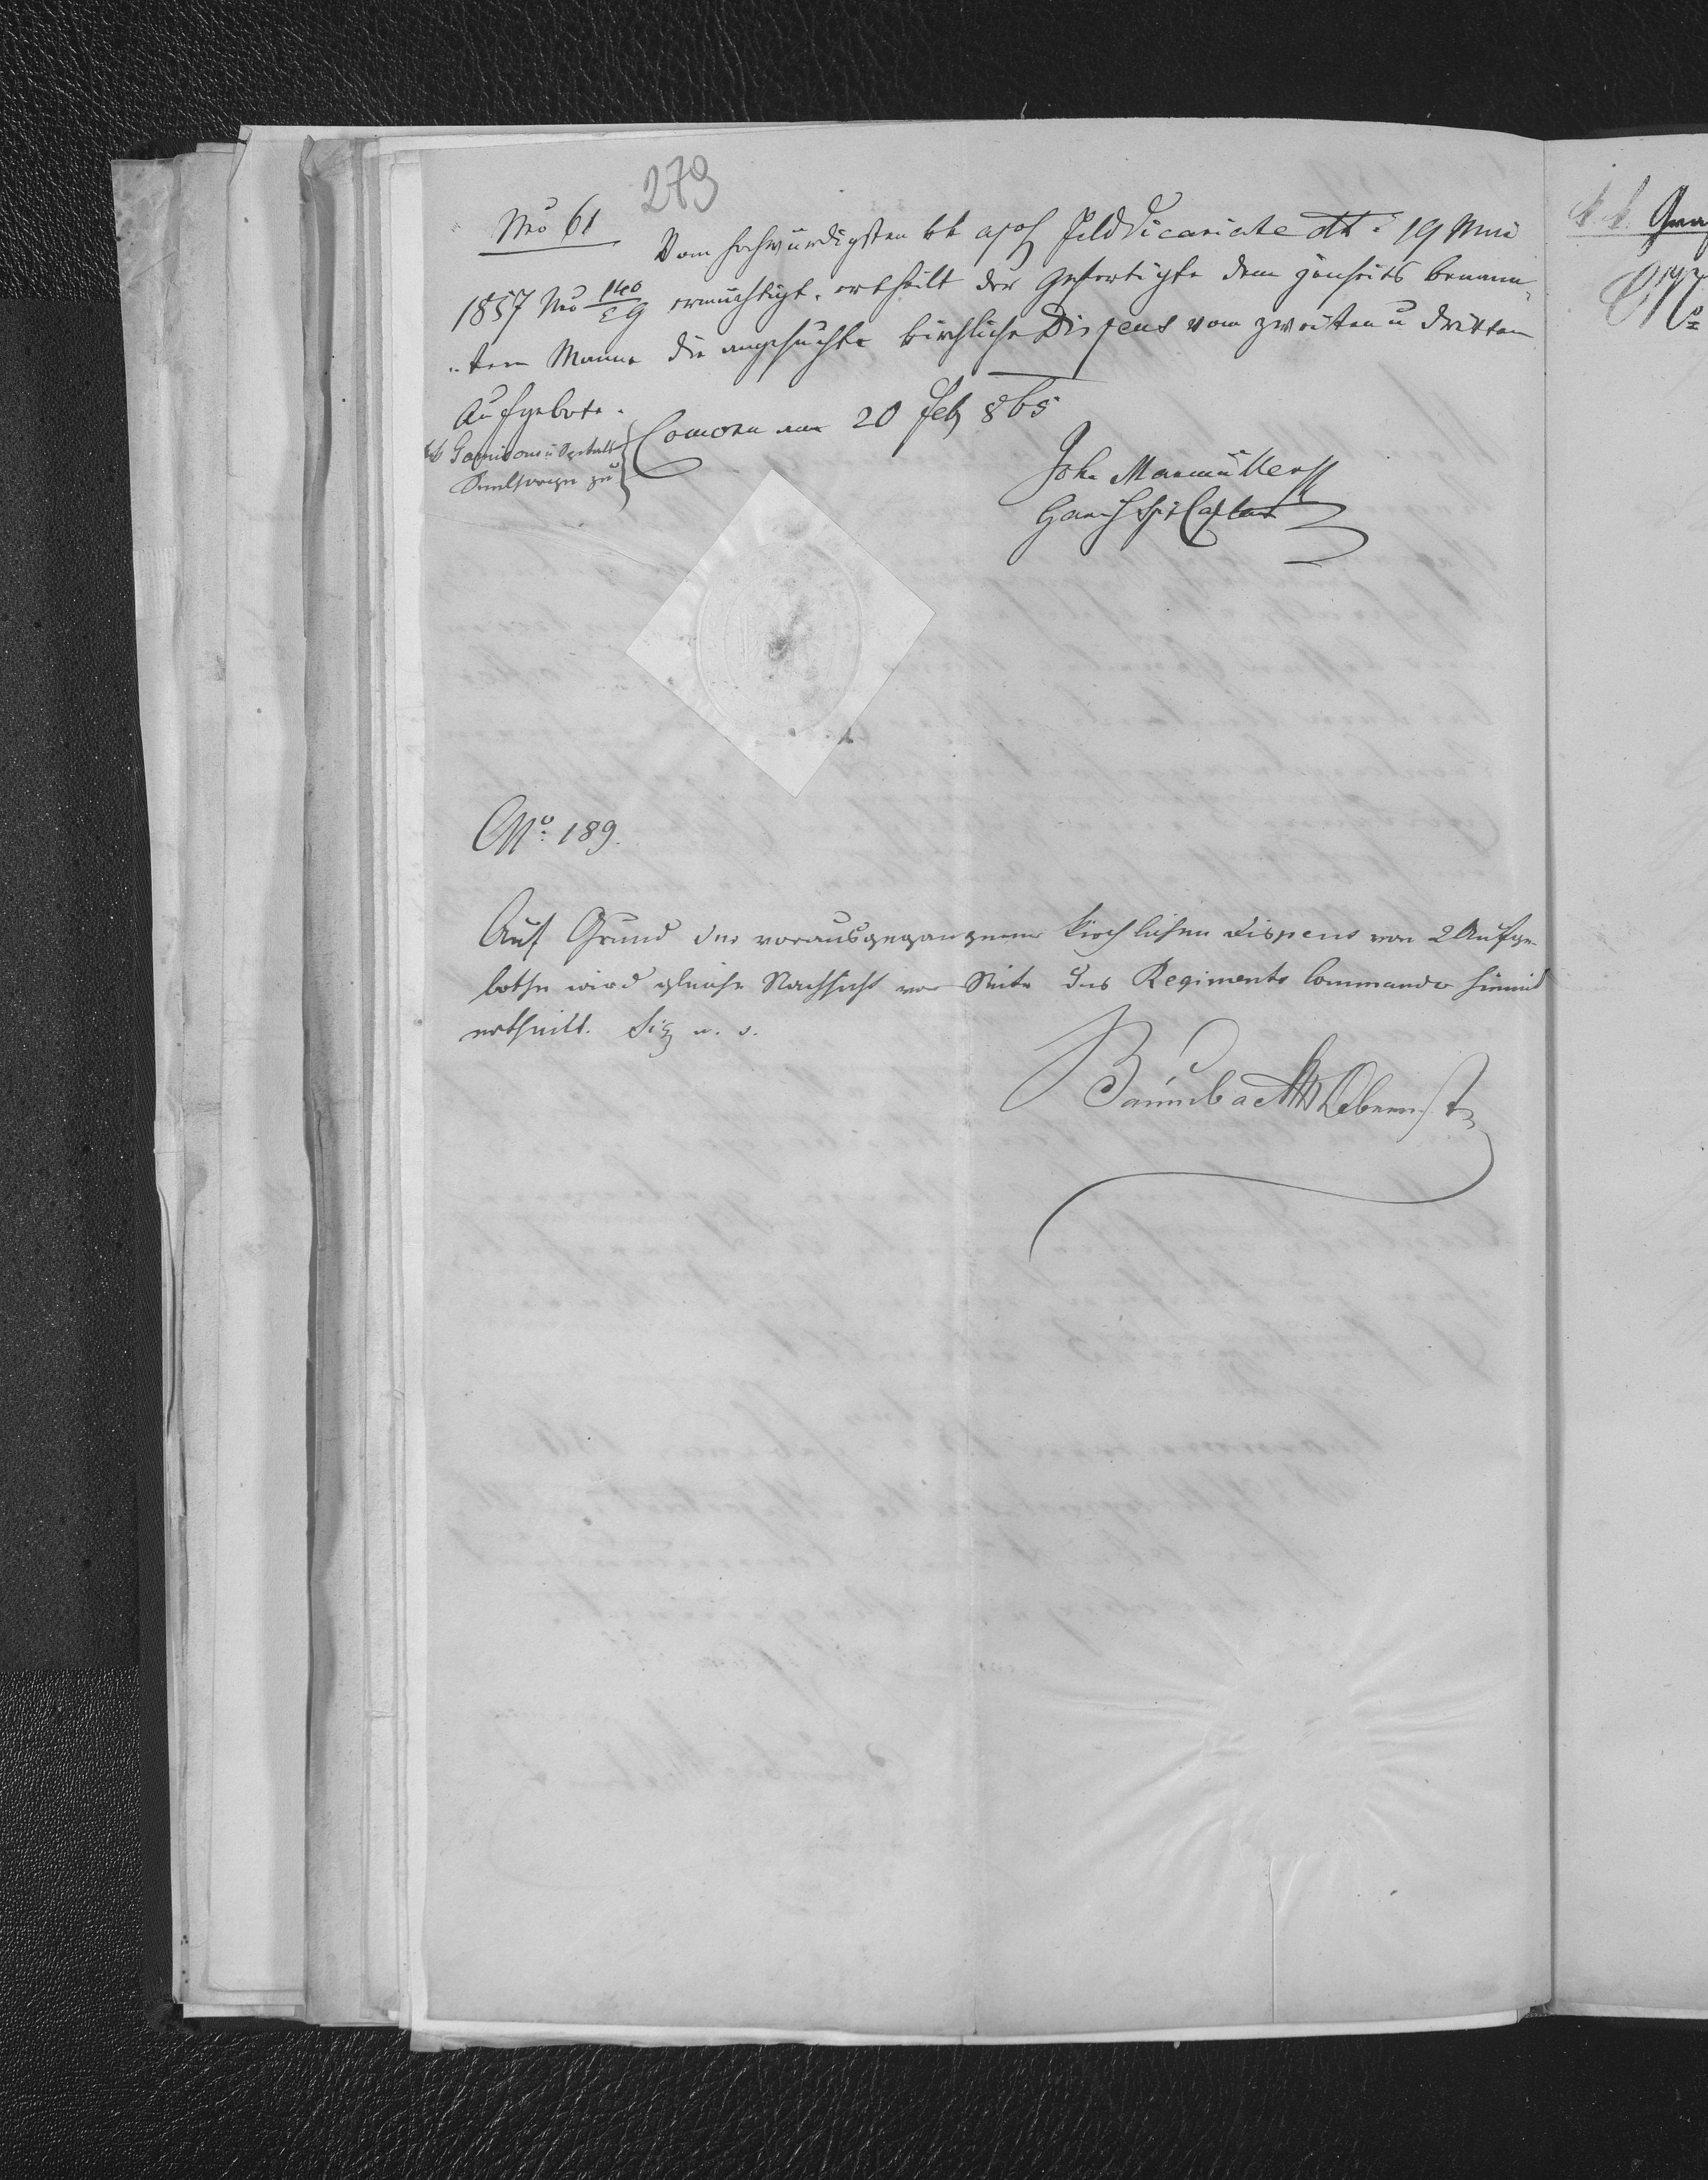 279
Nro 61
Vom hochwürdigsten kk apost Feld Vicariate dt: 19 Mai
1857 No 140/29 ermächtigt, ertheilt der Gefertigte dem jenseits benann-
tem Manne die angesuchte kirchliche Dispens vom zweiten u dritten
Aufgebote.
kk Garnisons u Spitals
Seelsorge zu
Comorn am 20 Feb 865
Joh. Marmüller
Garns Spit Caplan
No: 189.
Auf Grund der vorausgegangenen kirchlichen Dispens von 2 Aufge-
bothe wird gleiche Nachsicht von Seite des Regiments Commando hiemit
ertheilt. Sig u. s.
Baumbach Oberst
k. k. Gra
No